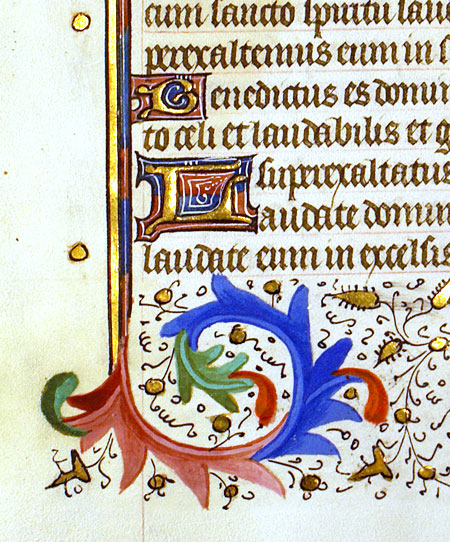 cum sancto spiritu lau
perexaltemus eum in s
Benedictus es domin
to celi et laudabilis et g
superexaltatus
Laudate domin
laudate eum in excelsis